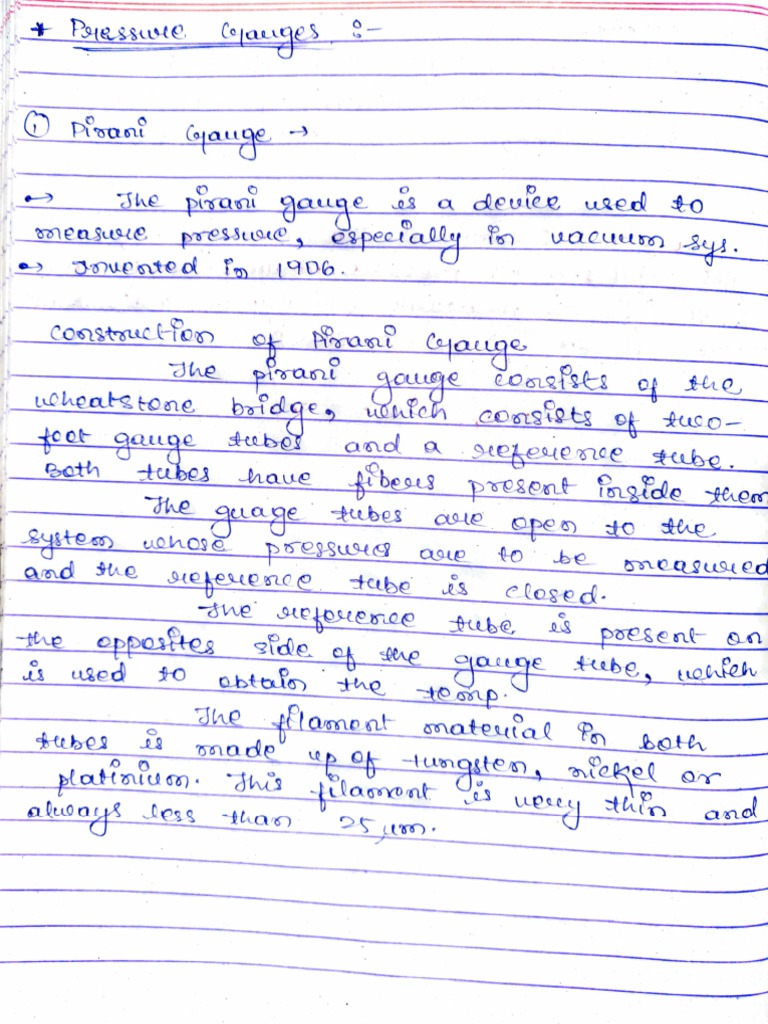 * Pressure Gauges :-
① Pirani Gauge →
→ The pirani gauge is a device used to
measure pressure, especially in vacuum sys.
→ Invented in 1906.
Construction of Pirani Gauge
The pirani gauge consists of the
wheatstone bridge, which consists of two-
foot gauge tubes and a reference tube.
Both tubes have fibers present inside them
The guage tubes are open to the
system whose pressures are to be measured
and the reference tube is closed.
The reference tube is present on
the opposites side of the gauge tube, which
is used to obtain the temp.
The filament material in both
tubes is made up of tungsten, nickel or
platinium. This filament is very thin and
always less than 25 µm.